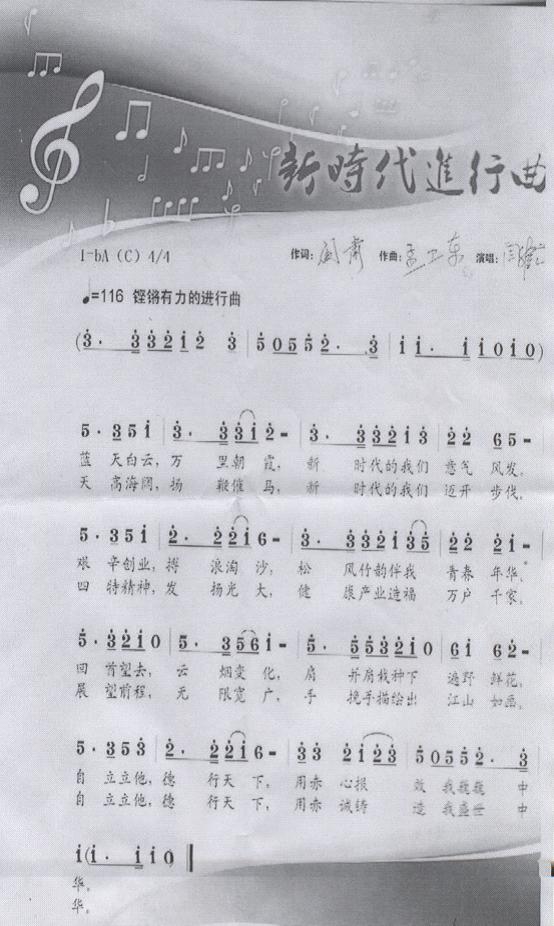 新時代進行曲
1=bA (C) 4/4 作词: 阎肃 作曲: 孟卫东 演唱:
♩=116 铿锵有力的进行曲
(3· 3 3 2 1 2 3 | 5 0 5 5 2· 3 | 1 1· 1 1 0 1 0)
5· 3 5 1 | 3· 3 3 1 2 - | 3· 3 3 2 1 3 | 2 2 6 5 -
蓝 天白云, 万 里朝 霞, 新 时代的我们 意气 风发,
天 高海阔, 扬 鞭催 马, 新 时代的我们 迈开 步伐,
5· 3 5 1 | 2· 2 2 1 6 - | 3· 3 3 2 1 3 5 | 2 2 2 1 -
艰 辛创业, 搏 浪淘 沙, 松 风竹韵伴我 青春 年华,
四 特精神, 发 扬光 大, 健 康产业造福 万户 千家,
5· 3 2 1 0 | 5· 3 5 6 1 - | 5· 5 5 3 2 1 0 | 6 1 6 2 -
回 首望去, 云 烟变 化, 肩 并肩栽种下 遍野 鲜花,
展 望前程, 无 限宽 广, 手 挽手描绘出 江山 如画,
5· 3 5 3 | 2· 2 2 1 6 - | 3 3 2 1 2 3 | 5 0 5 5 2· 3
自 立立他, 德 行天 下, 用赤 心报 效 我巍巍 中
自 立立他, 德 行天 下, 用赤 诚铸 造 我盛世 中
1 (1· 1 1 0)
华。
华。